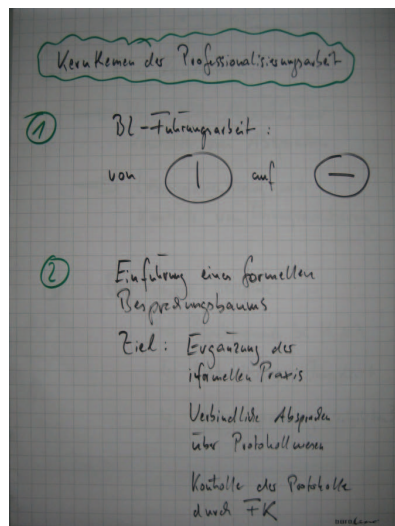 Kernthemen der Professionalisierungsarbeit
1 BL-Führungsarbeit:
von | auf —
2 Einführung eines formellen
Besprechungsbaums
Ziel: Ergänzung der
informellen Praxis
Verbindliche Absprachen
über Protokollwesen
Kontrolle der Protokolle
durch FK